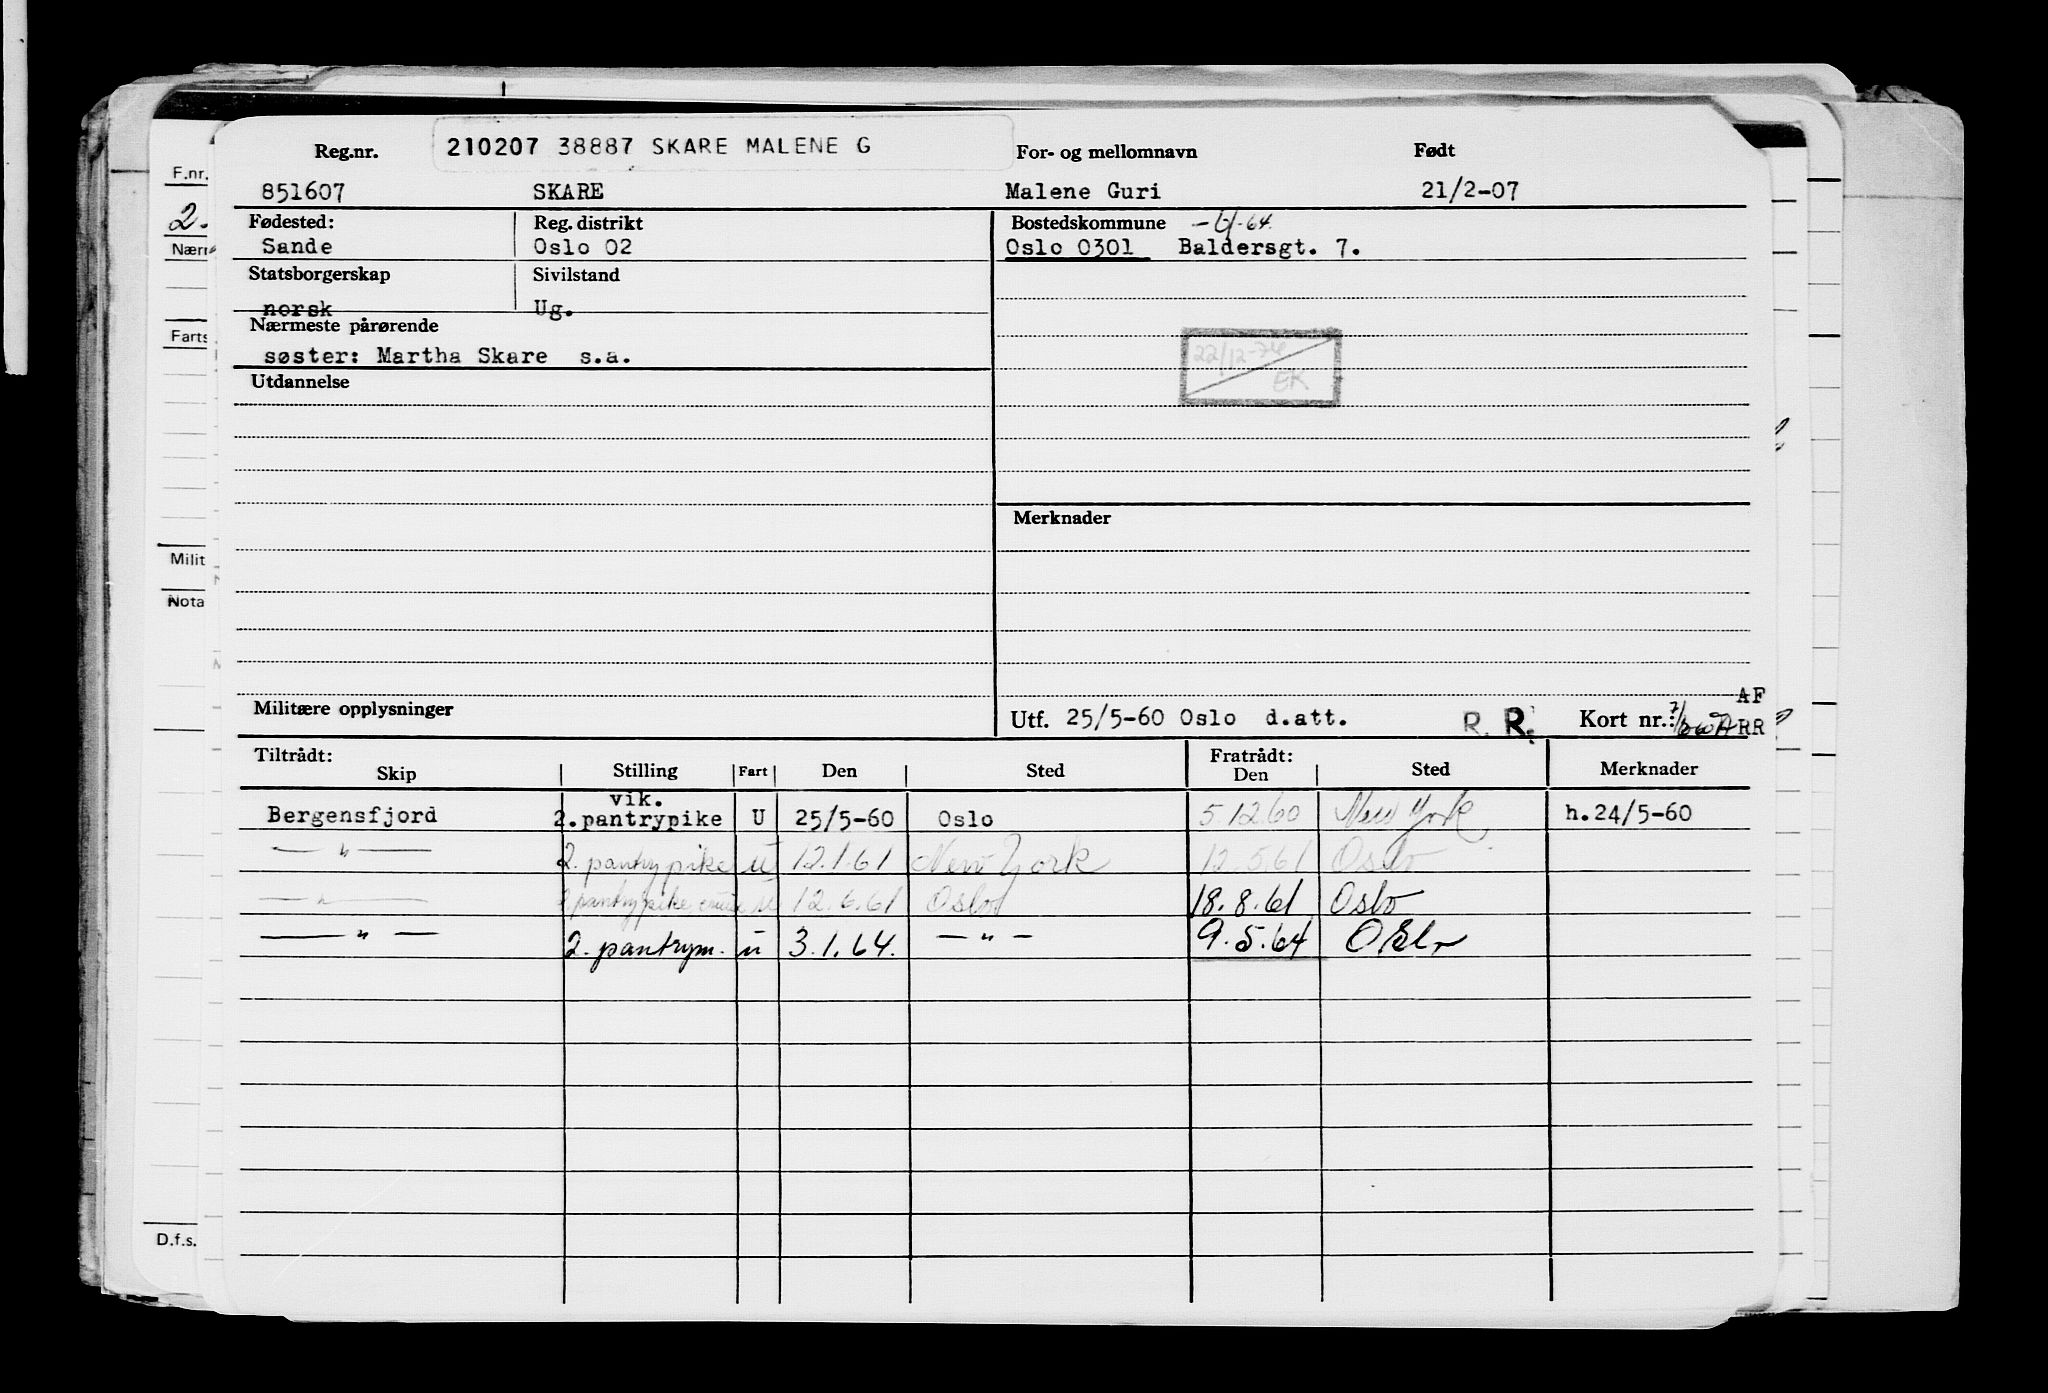 Reg.nr. 210207 38887 SKARE MALENE G For- og mellomnavn Født
851607 SKARE Malene Guri 21/2-07
Fødested: Reg. distrikt Bostedskommune
Sande Oslo 02 Oslo 0301 Baldersgt. 7.
Statsborgerskap Sivilstand
norsk Ug.
Nærmeste pårørende
søster: Martha Skare s.a.
22/12-76
EK
Utdannelse
Merknader
Militære opplysninger
AF
Utf. 25/5-60 Oslo d.att. R. R. Kort nr.: RR
Tiltrådt: Fratrådt:
Skip Stilling Fart Den Sted Den Sted Merknader
vik.
Bergensfjord 2.pantrypike U 25/5-60 Oslo 5.12.60 New York h.24/5-60
— " — 2. pantrypike u 12.1.61 New York 12.5.61 Oslo
— " — pantrypike u 12.6.61 Oslo 18.8.61 Oslo
— " — 2. pantrym. u 3.1.64. — " — 9.5.64 Oslo
F.nr.
2.
Nærm
Farts
Milit
Nota
D.f.s.